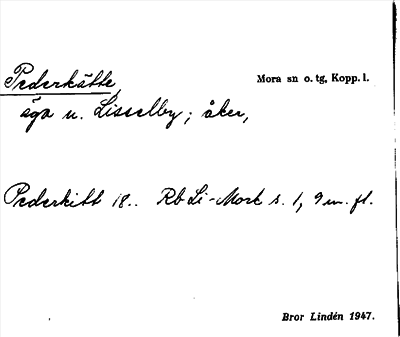 Pederkätte, Mora sn o. tg, Kopp. l.
äga u. Lisselby; åker,
Pederkitt 18.. Rb Li-Mork s. 1, 9 m. fl.
Bror Lindén 1947.